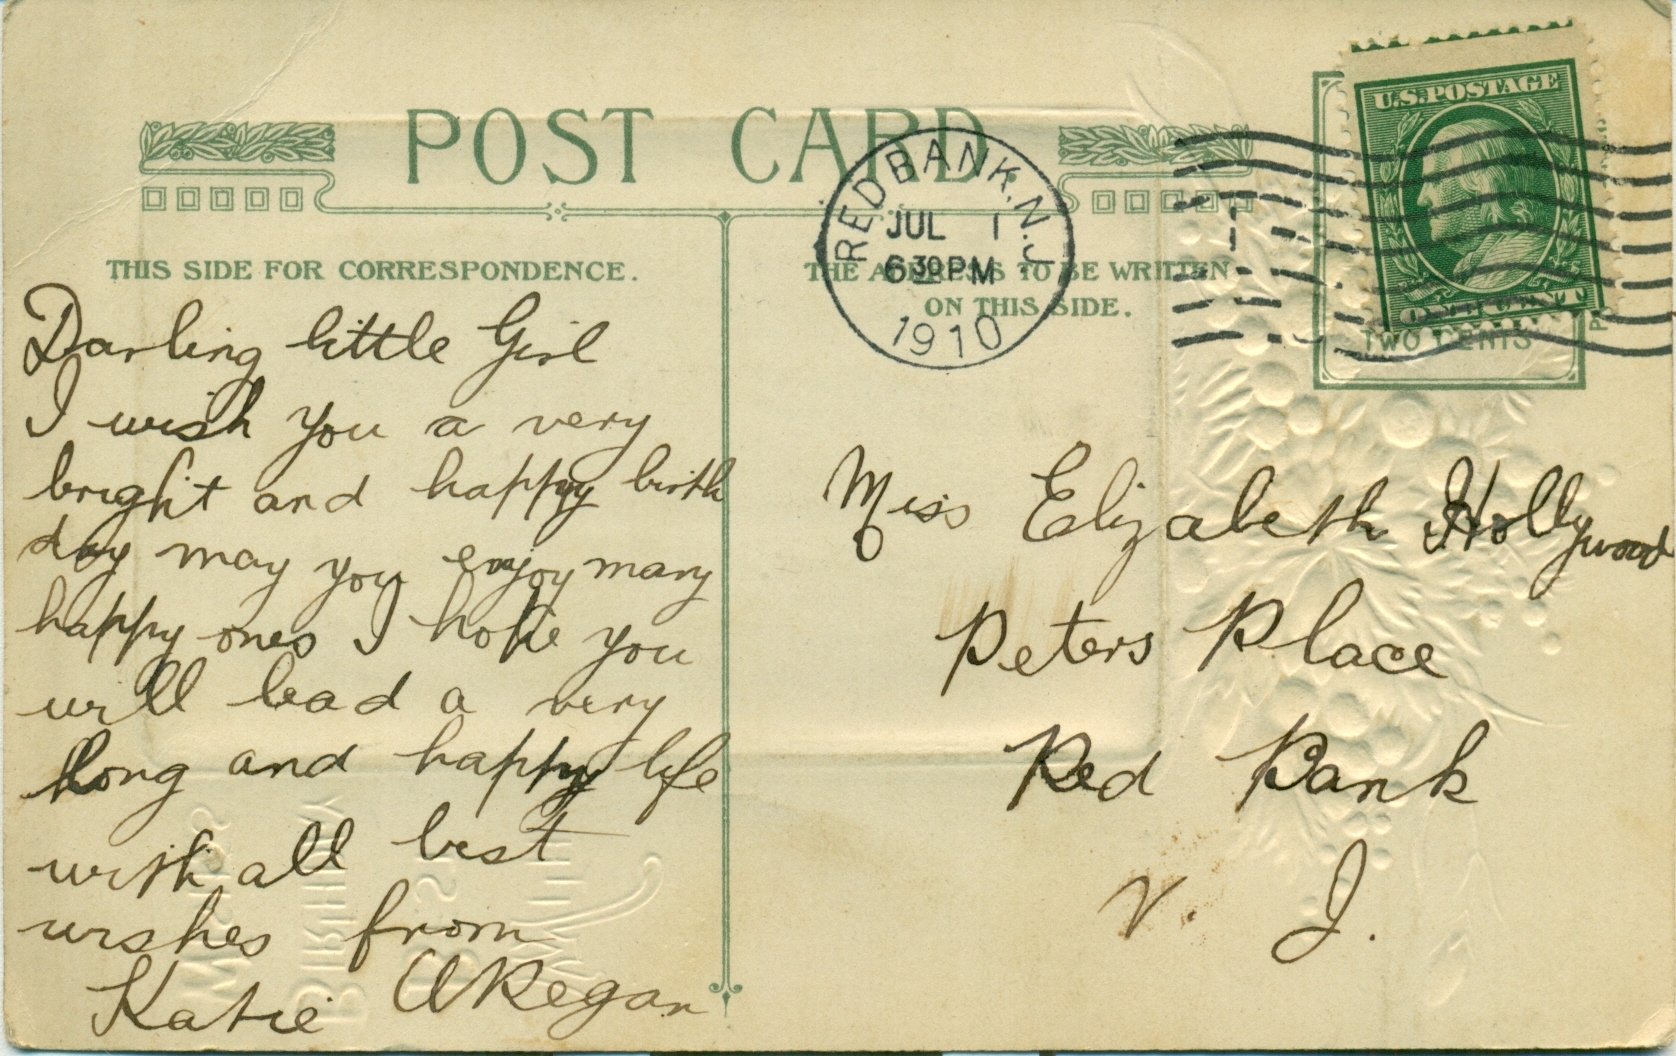 POST CARD
THIS SIDE FOR CORRESPONDENCE.
Darling little Girl
I wish you a very
bright and happy birth
day may you enjoy many
happy ones I hope you
will lead a very
long and happy life
with all best
wishes from
Katie O'Regan
THE ADDRESS TO BE WRITTEN
ON THIS SIDE.
RED BANK, N.J.
JUL 1
6 30 PM
1910
U.S. POSTAGE
TWO CENTS
Miss Elizabeth Hollywood
Peters Place
Red Bank
N. J.